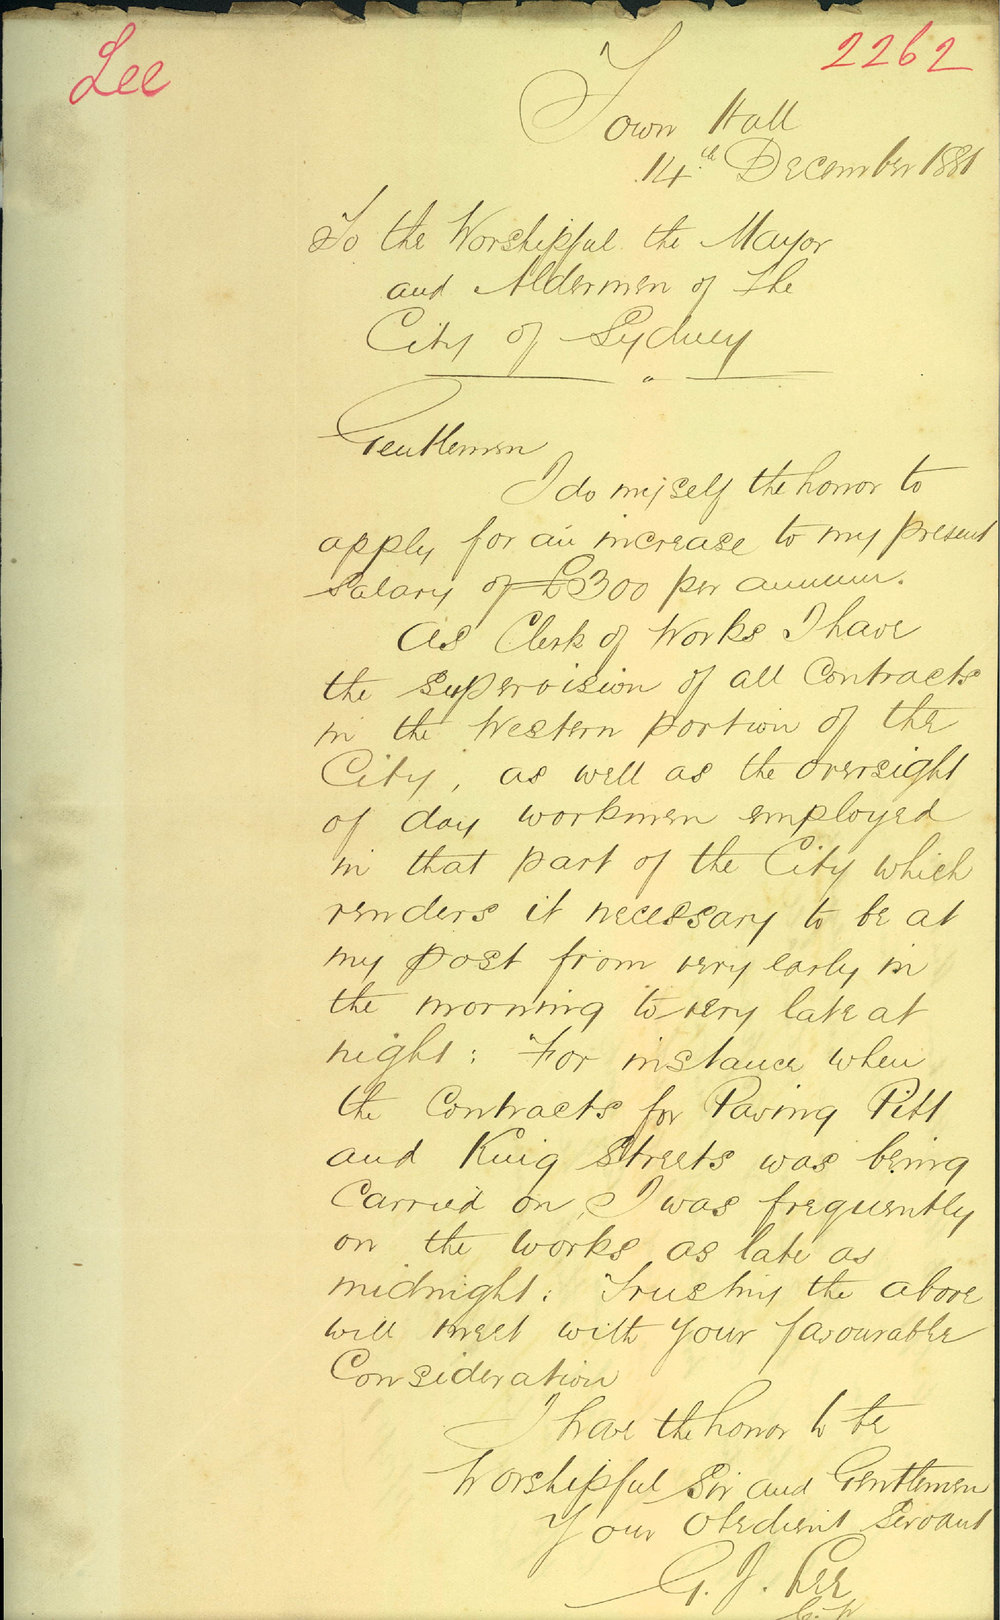 Lee
2262
Town Hall
14th December 1881
To the Worshipful the Mayor
and Aldermen of the
City of Sydney
Gentlemen
I do myself the honor to
apply for an increase to my present
salary of £300 per annum.
As Clerk of Works I have
the supervision of all Contracts
in the Western portion of the
City, as well as the oversight
of day workmen employed
in that part of the City which
renders it necessary to be at
my post from very early in
the morning to very late at
night: For instance when
the Contracts for Paving Pitt
and King Streets was being
Carried on, I was frequently
on the works as late as
midnight: Trusting the above
will meet with your favourable
Consideration
I have the honor to be
Worshipful Sir and Gentlemen
Your Obedient Servant
G. J. Lee
C. W